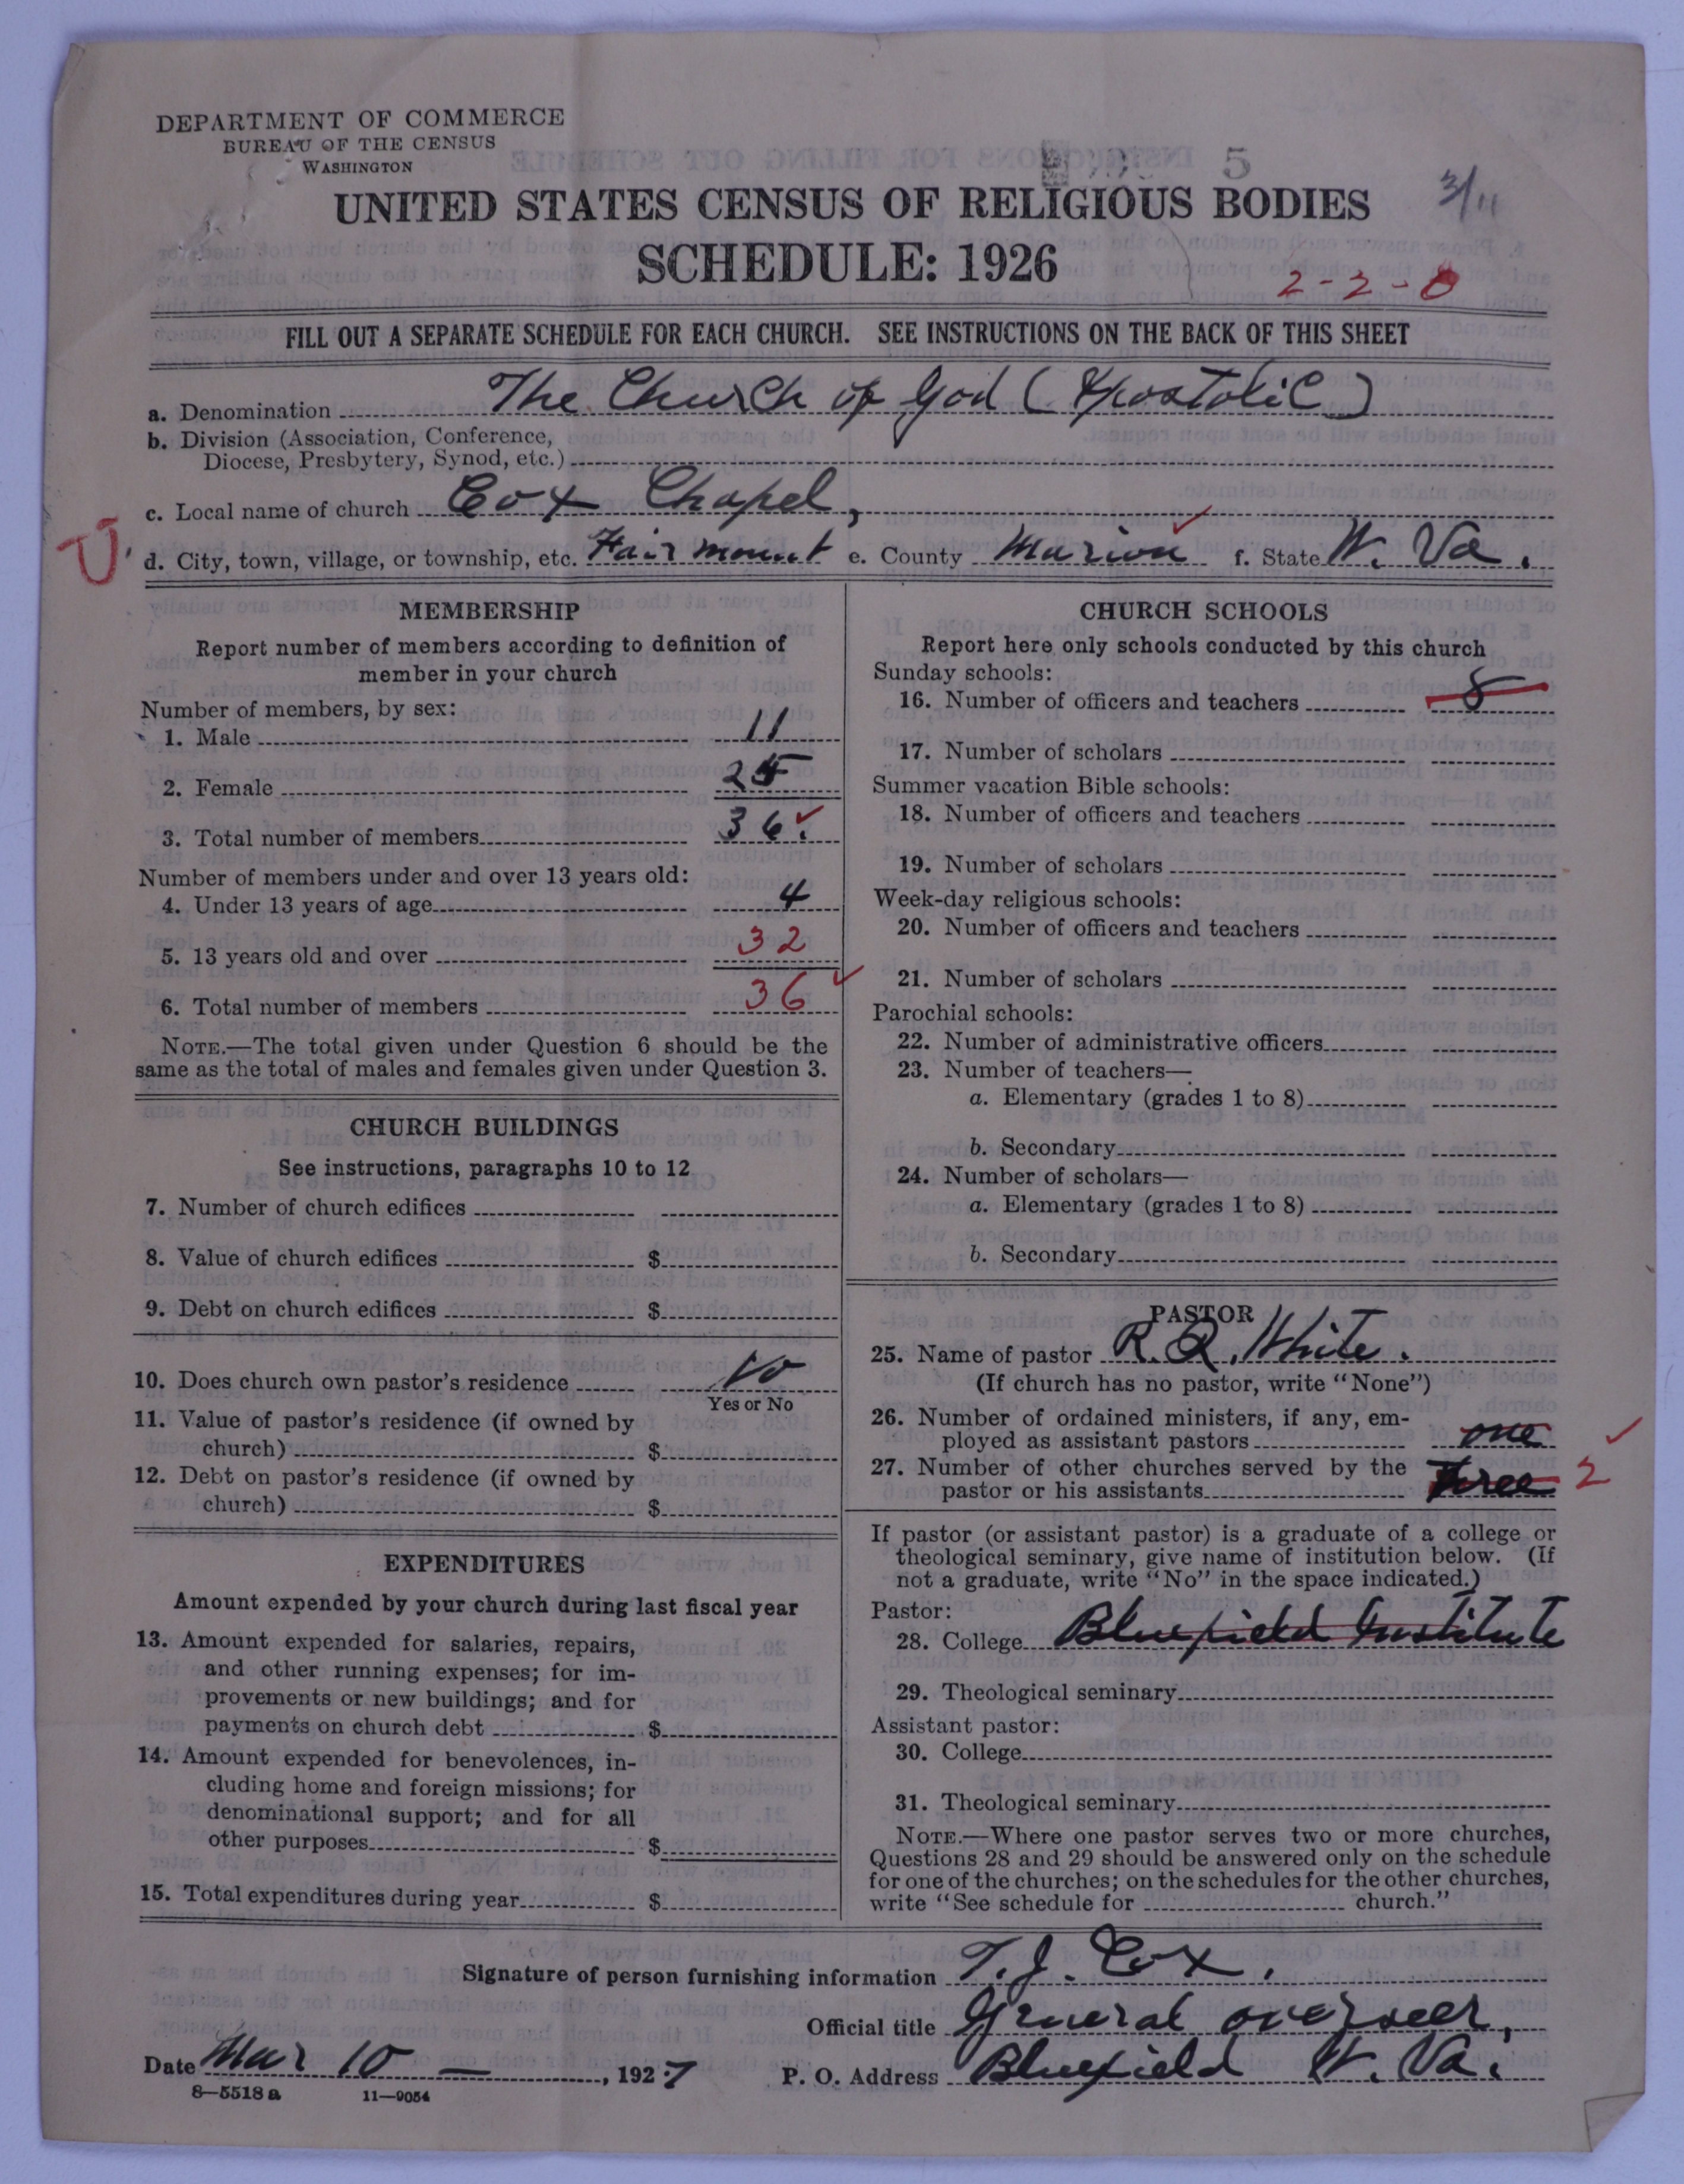 DEPARTMENT OF COMMERCE
BUREAU OF THE CENSUS
WASHINGTON
5
UNITED STATES CENSUS OF RELIGIOUS BODIES
3/11
SCHEDULE: 1926
2-2-0
FILL OUT A SEPARATE SCHEDULE FOR EACH CHURCH. SEE INSTRUCTIONS ON THE BACK OF THIS SHEET
a. Denomination The Church of God (Apostolic)
b. Division (Association, Conference,
Diocese, Presbytery, Synod, etc.)
c. Local name of church Cox Chapel,
U
d. City, town, village, or township, etc. Fairmount e. County Marion f. State W. Va.
MEMBERSHIP
Report number of members according to definition of
member in your church
Number of members, by sex:
1. Male 11
2. Female 25
3. Total number of members 36.
Number of members under and over 13 years old:
4. Under 13 years of age 4
5. 13 years old and over 32
6. Total number of members 36
NOTE.—The total given under Question 6 should be the
same as the total of males and females given under Question 3.
CHURCH BUILDINGS
See instructions, paragraphs 10 to 12
7. Number of church edifices
8. Value of church edifices $
9. Debt on church edifices $
10. Does church own pastor's residence No
Yes or No
11. Value of pastor's residence (if owned by
church) $
12. Debt on pastor's residence (if owned by
church) $
EXPENDITURES
Amount expended by your church during last fiscal year
13. Amount expended for salaries, repairs,
and other running expenses; for im-
provements or new buildings; and for
payments on church debt $
14. Amount expended for benevolences, in-
cluding home and foreign missions; for
denominational support; and for all
other purposes $
15. Total expenditures during year $
CHURCH SCHOOLS
Report here only schools conducted by this church
Sunday schools:
16. Number of officers and teachers 8
17. Number of scholars
Summer vacation Bible schools:
18. Number of officers and teachers
19. Number of scholars
Week-day religious schools:
20. Number of officers and teachers
21. Number of scholars
Parochial schools:
22. Number of administrative officers
23. Number of teachers—
a. Elementary (grades 1 to 8)
b. Secondary
24. Number of scholars—
a. Elementary (grades 1 to 8)
b. Secondary
PASTOR
25. Name of pastor R. R. White.
(If church has no pastor, write "None")
26. Number of ordained ministers, if any, em-
ployed as assistant pastors one
27. Number of other churches served by the
pastor or his assistants three 2
If pastor (or assistant pastor) is a graduate of a college or
theological seminary, give name of institution below. (If
not a graduate, write "No" in the space indicated.)
Pastor:
28. College Bluefield Institute
29. Theological seminary
Assistant pastor:
30. College
31. Theological seminary
NOTE.—Where one pastor serves two or more churches,
Questions 28 and 29 should be answered only on the schedule
for one of the churches; on the schedules for the other churches,
write "See schedule for church."
Signature of person furnishing information T. J. Cox.
Official title General overseer,
Date Mar 10 —, 1927
P. O. Address Bluefield W. Va.
8—5518a 11—9054